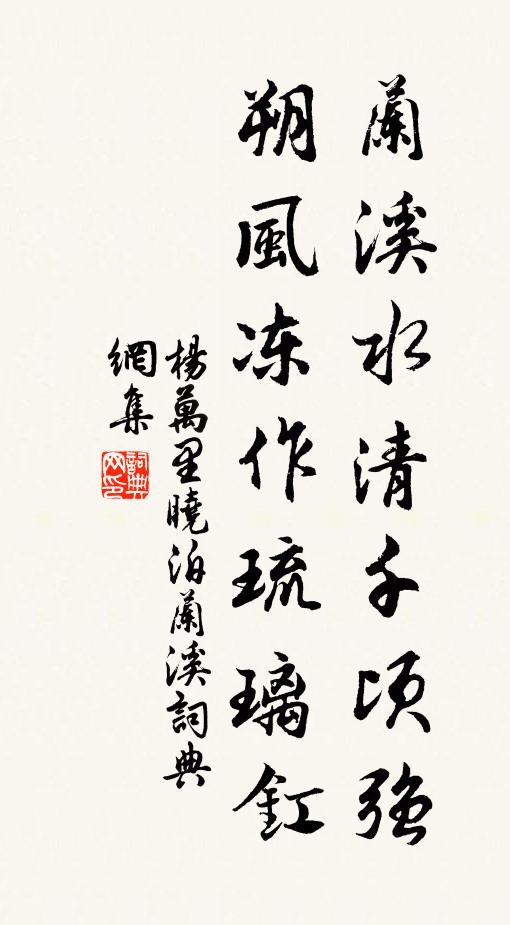 蘭溪水清千頃強
朔風冻作琉璃釭
楊萬里曉泊蘭溪詞典
網集
詞典
网印